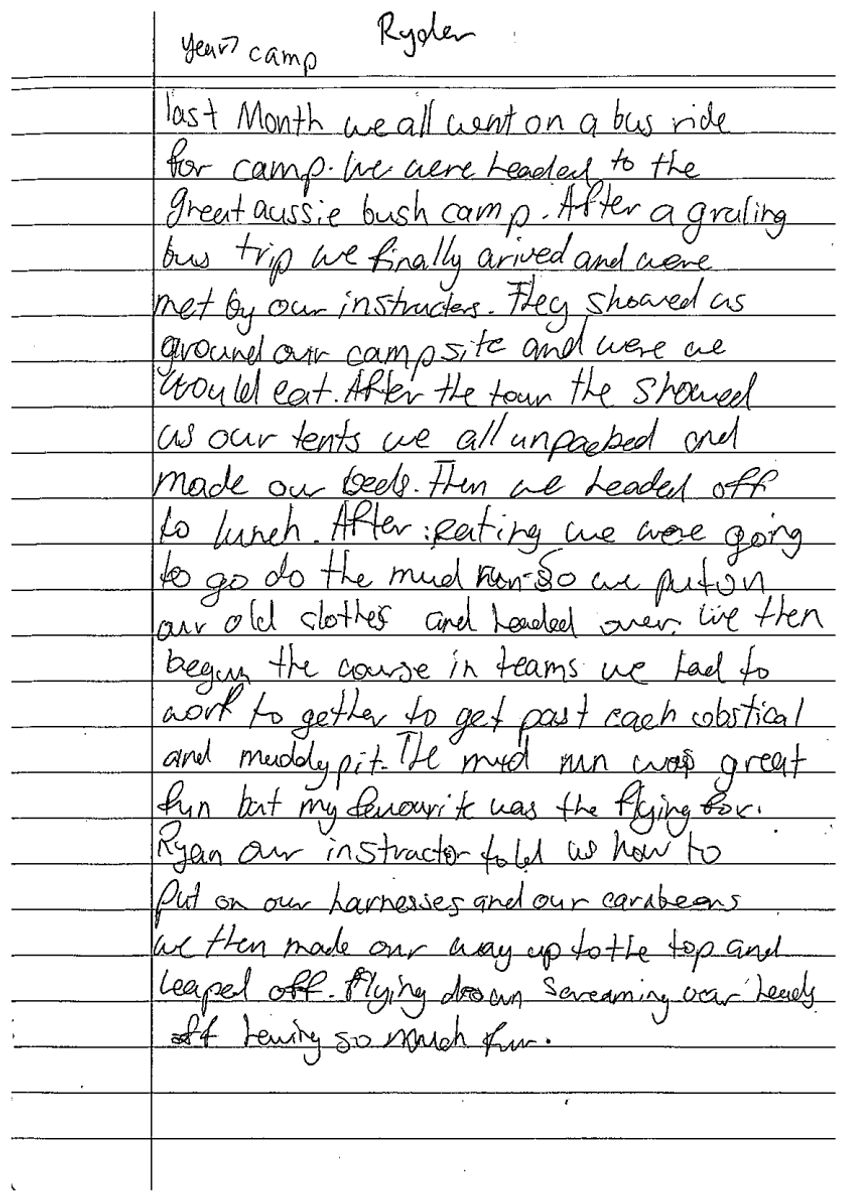 Ryder
year 7 camp
last Month we all went on a bus ride
for camp. We were headed to the
great aussie bush camp. After a gruling
bus trip we finally arived and were
met by our instructers. They showed us
around our camp site and were we
would eat. After the tour the showed
us our tents we all unpacked and
made our beds. Then we headed off
to lunch. After eating we were going
to go do the mud run so we put on
our old clothes and headed over. We then
begun the course in teams we had to
work to gether to get past each obstical
and muddy pit. The mud run was great
fun but my favourite was the flying fox.
Ryan our instractor told us how to
put on our harnesses and our carabeans
we then made our way up to the top and
leaped off. flying down screaming our heads
off having so much fun.